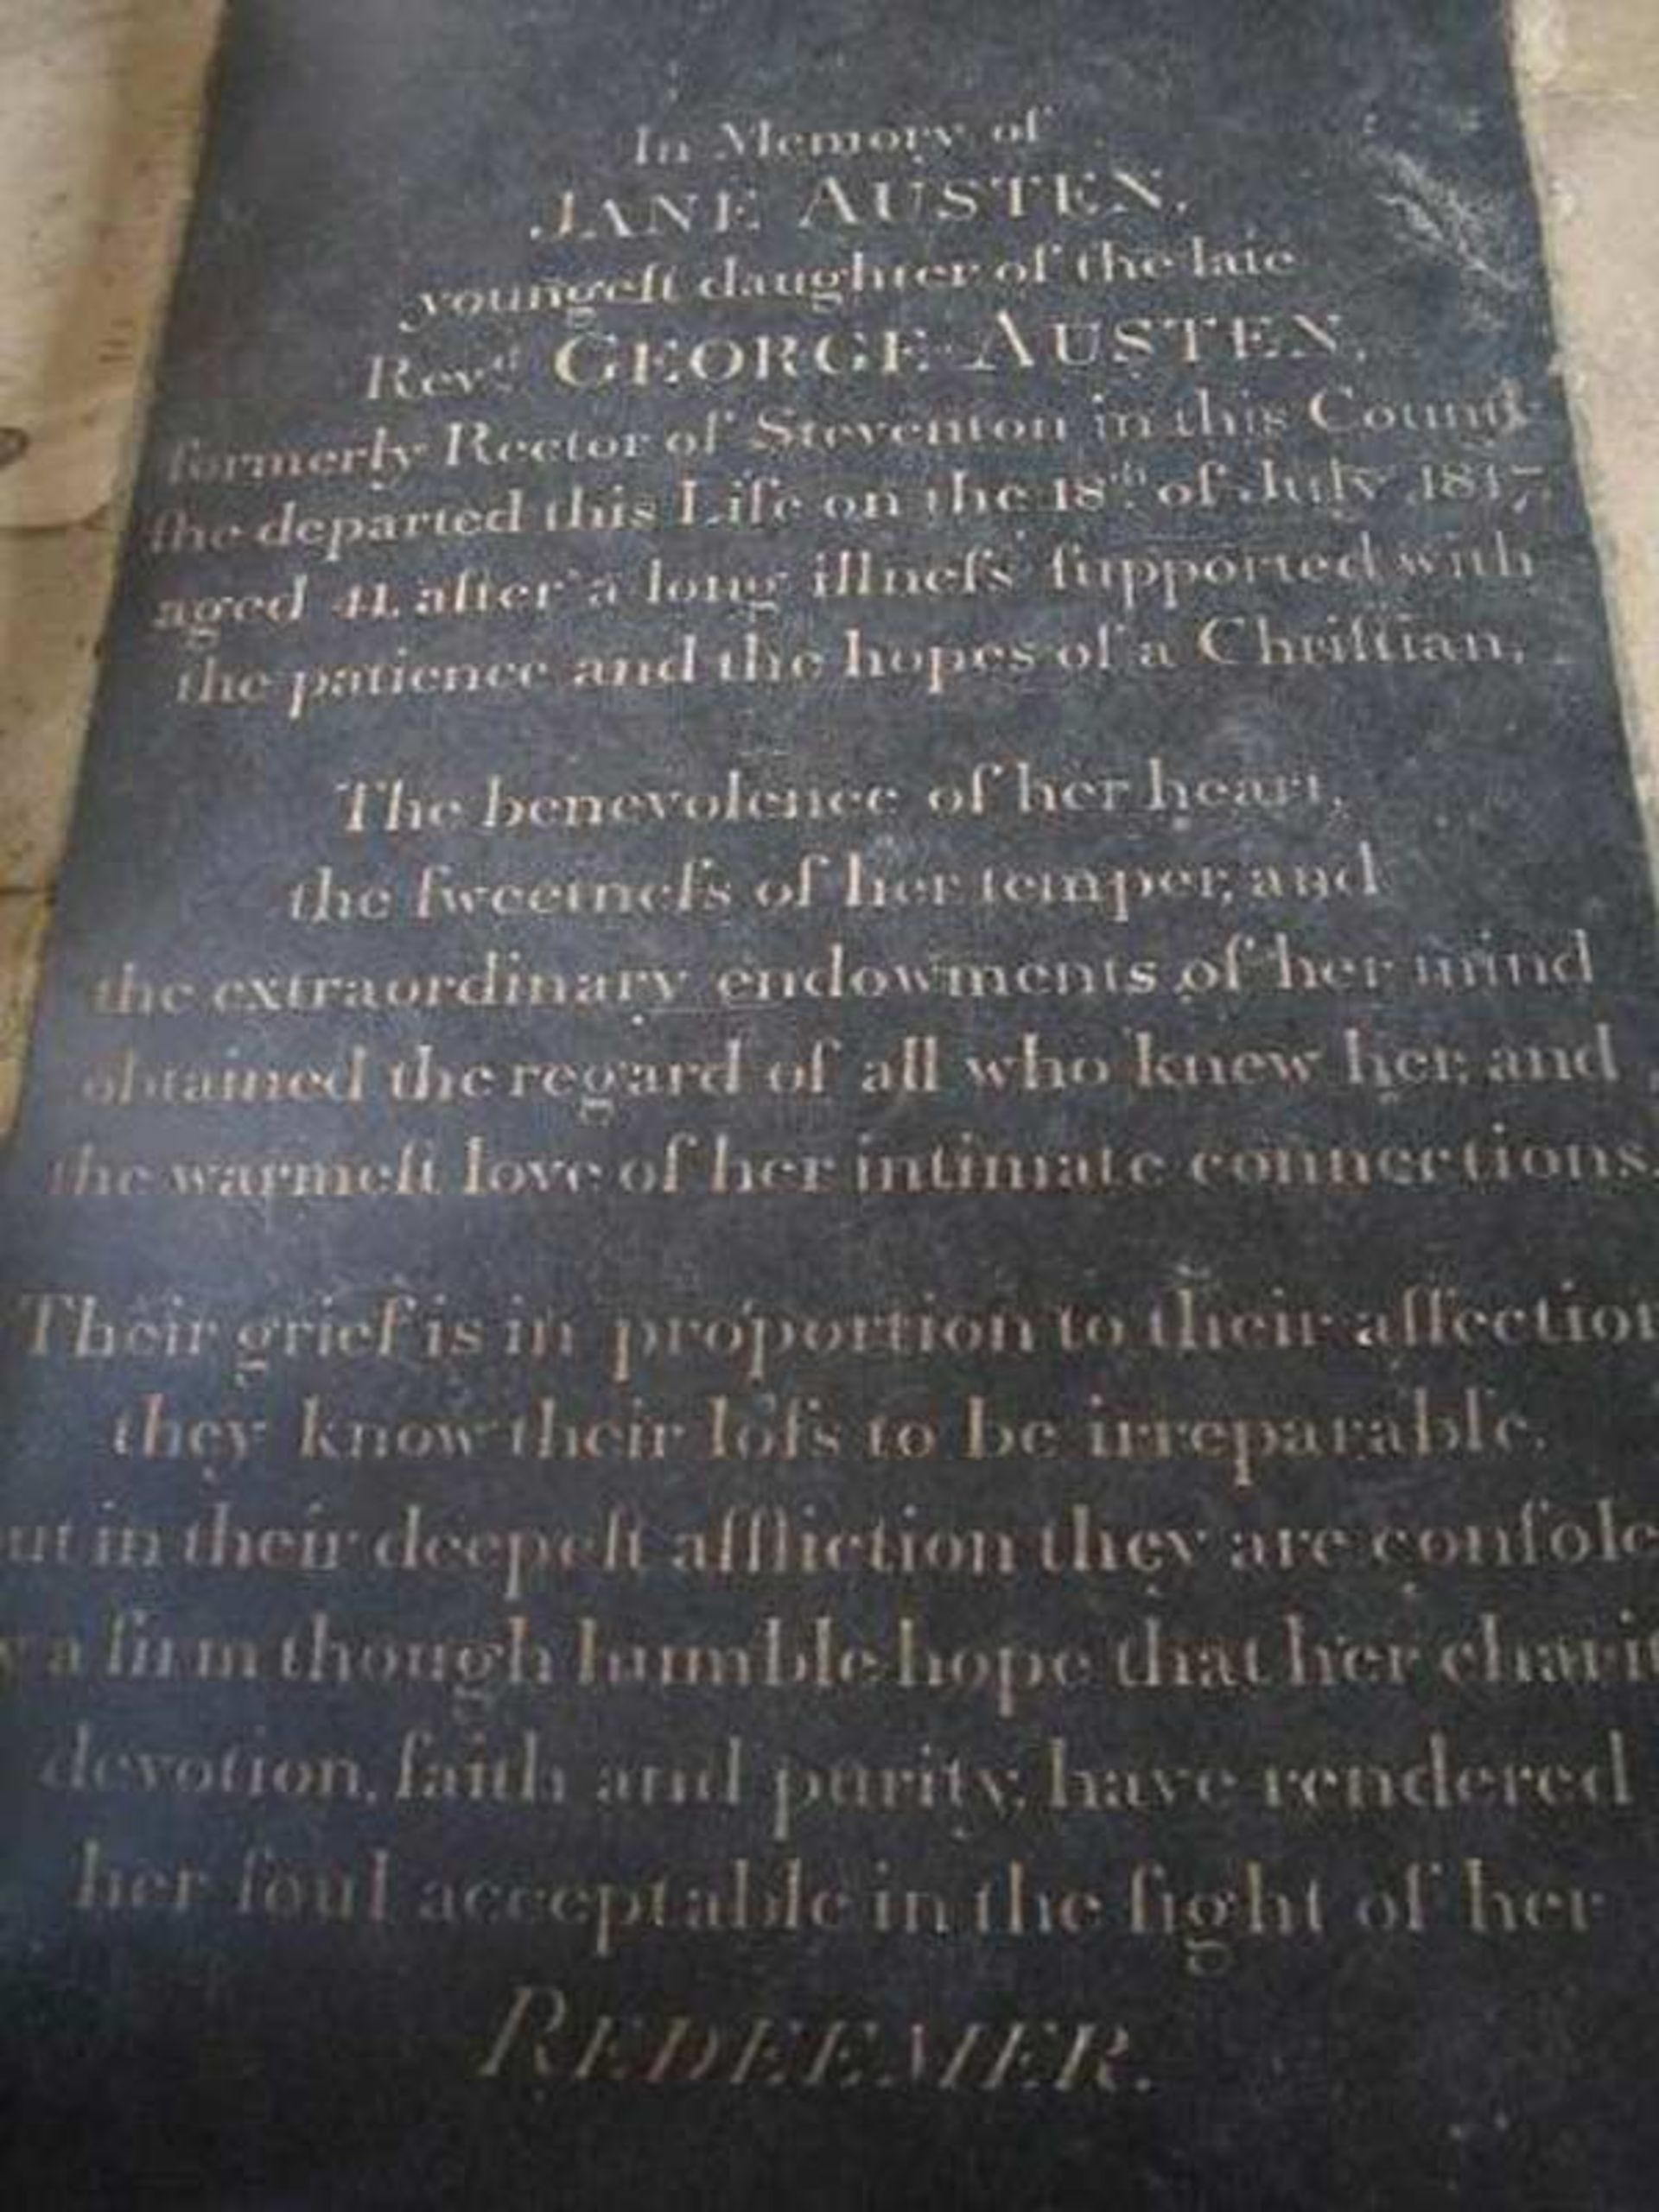 In Memory of
JANE AUSTEN,
youngeſt daughter of the late
Revd GEORGE AUSTEN,
formerly Rector of Steventon in this County
ſhe departed this Life on the 18th of July 1817,
aged 41, after a long illneſs ſupported with
the patience and the hopes of a Chriſtian.
The benevolence of her heart,
the ſweetneſs of her temper, and
the extraordinary endowments of her mind
obtained the regard of all who knew her, and
the warmeſt love of her intimate connections.
Their grief is in proportion to their affection
they know their loſs to be irreparable,
ut in their deepeſt affliction they are conſole
y a firm though humble hope that her charit
devotion, faith and purity, have rendered
her ſoul acceptable in the ſight of her
REDEEMER.